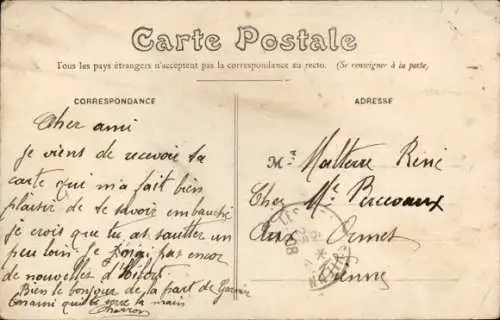 Carte Postale
Tous les pays étrangers n'acceptent pas la correspondance au recto. (Se renseigner à la poste)
CORRESPONDANCE
ADRESSE
Cher ami
je viens de recevoir ta
carte qui m'a fait bien
plaisir de te savoir embauché
je crois que tu as sauter un
peu loin. Je pas encor
de nouvelles
Bien le bonjour de la part de
qui te serre la main
M. Malterre Réné
Cher Mr. Perceaux
aux Ormes
Vienne